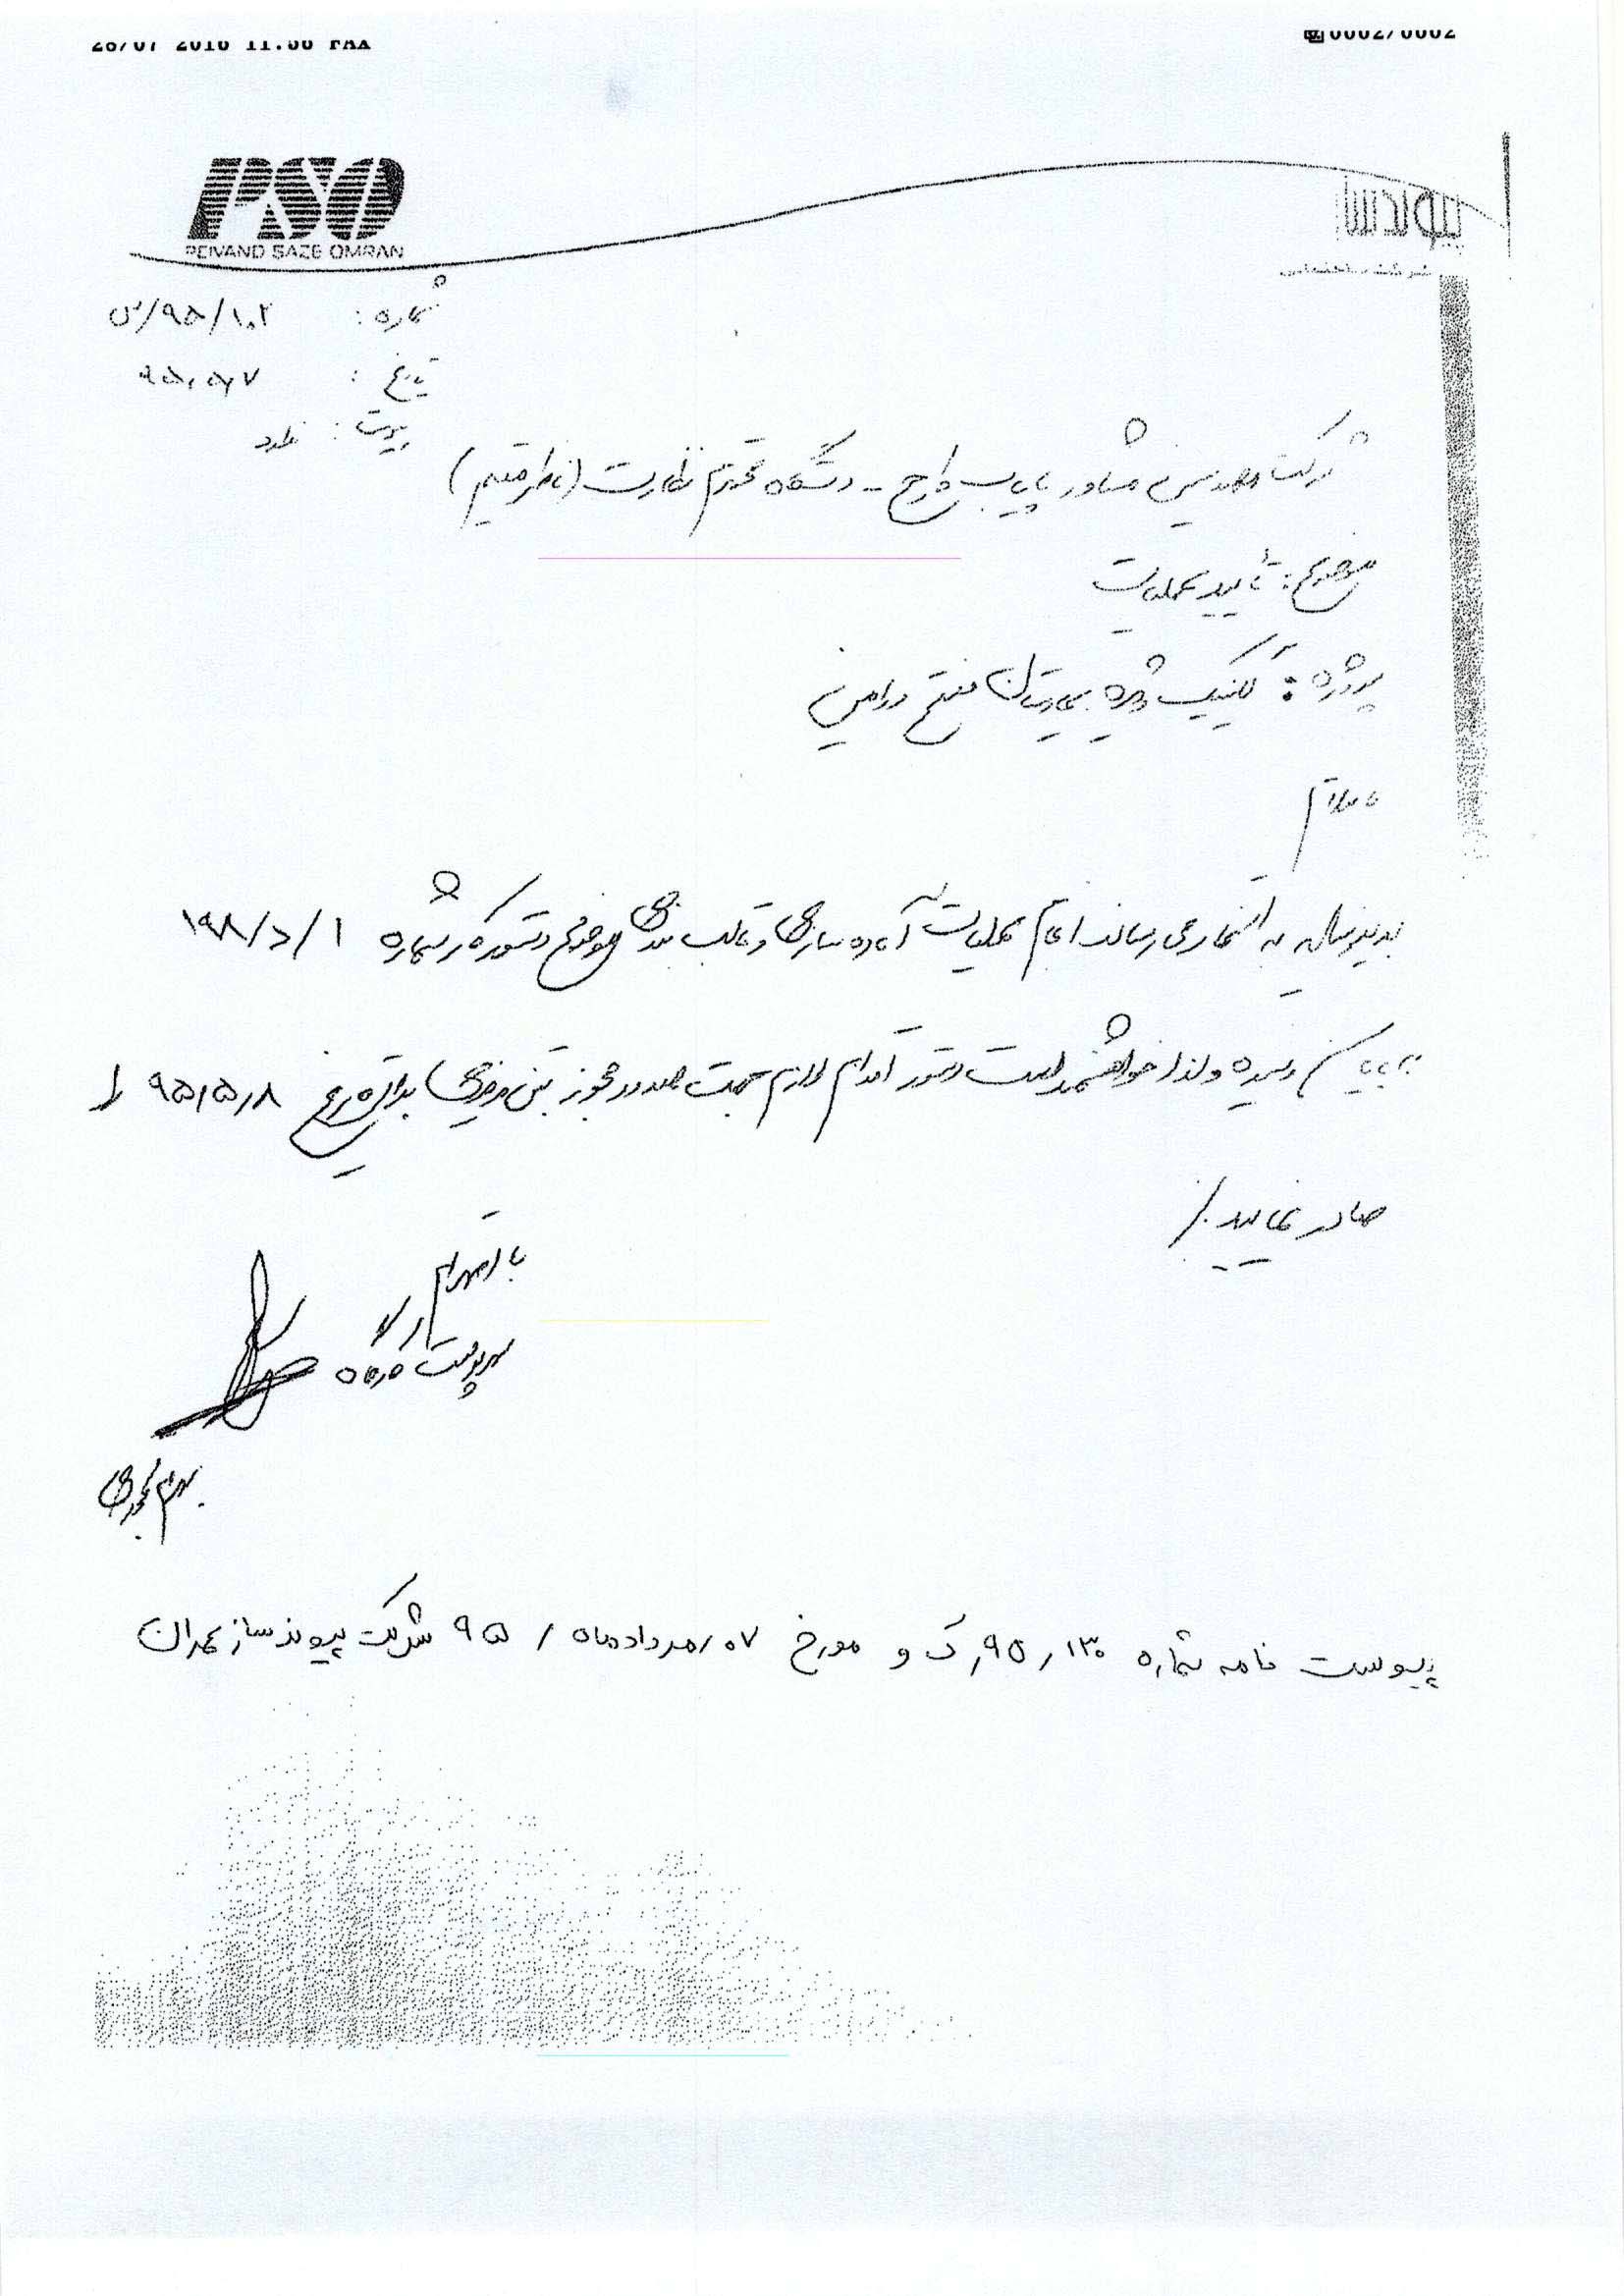 28/07 2016 11:56 FAX
0002/0002
PSO
PEIVAND SAZE OMRAN
شماره : ۹۵/۱۰۲/س
تاریخ : ۹۵,۵,۷
پیوست : ندارد
شرکت مهندسین مشاور پایاب طرح - دستگاه محترم نظارت (ناظر مقیم)
موضوع : تأیید عملیات
پروژه : کلینیک ویژه بیمارستان مفتح ورامین
با سلام
بدینوسیله به استحضار می‌رساند انجام عملیات آماده سازی و قالب بندی موضوع دستورکار شماره ۱۹۸/د/۱
به پایان رسیده و لذا خواهشمند است دستور اقدام لازم جهت صدور مجوز بتن ریزی برای تاریخ ۹۵,۵,۸ را
صادر نمایید ./
با احترام
سرپرست کارگاه
پیوست نامه شماره ۱۳۰ر۹۵رک و مورخ ۰۷/مرداد ماه / ۹۵ شرکت پیوند ساز عمران